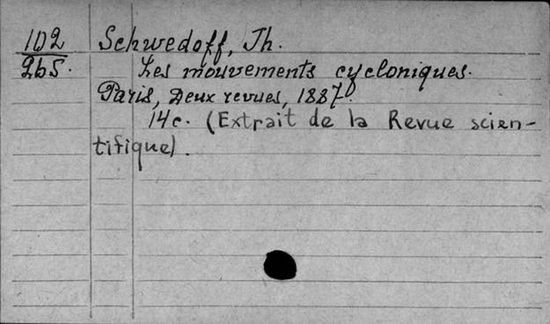 102 Schwedoff, Th.
265. Les mouvements cycloniques.
Paris, Deux revues, 1887.
14c. (Extrait de la Revue scien-
tifique).